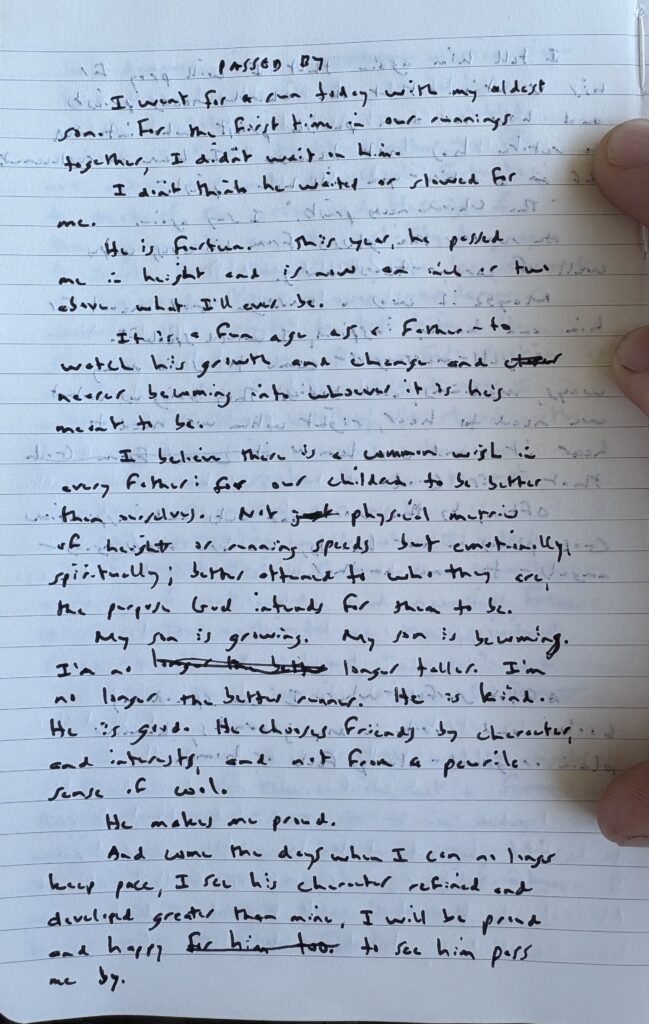 PASSED BY
I went for a run today with my oldest
son. For the first time in our runnings
together, I didn't wait on him.
I don't think he waited or slowed for
me.
He is fourteen. This year he passed
me in height and is now an inch or two
above what I'll ever be.
It is a fun age as a father to
watch his growth and change and
nearer becoming into whoever it is he's
meant to be.
I believe there is a common wish in
every father: for our children to be better
than ourselves. Not just physical metrics
of height or running speeds but emotionally,
spiritually; better attuned to who they are,
the purpose God intends for them to be.
My son is growing. My son is becoming.
I'm no longer the better longer taller. I'm
no longer the better runner. He is kind.
He is good. He chooses friends by character,
and interests, and not from a puerile
sense of cool.
He makes me proud.
And come the days when I can no longer
keep pace, I see his character refined and
developed greater than mine, I will be proud
and happy for him too. to see him pass
me by.